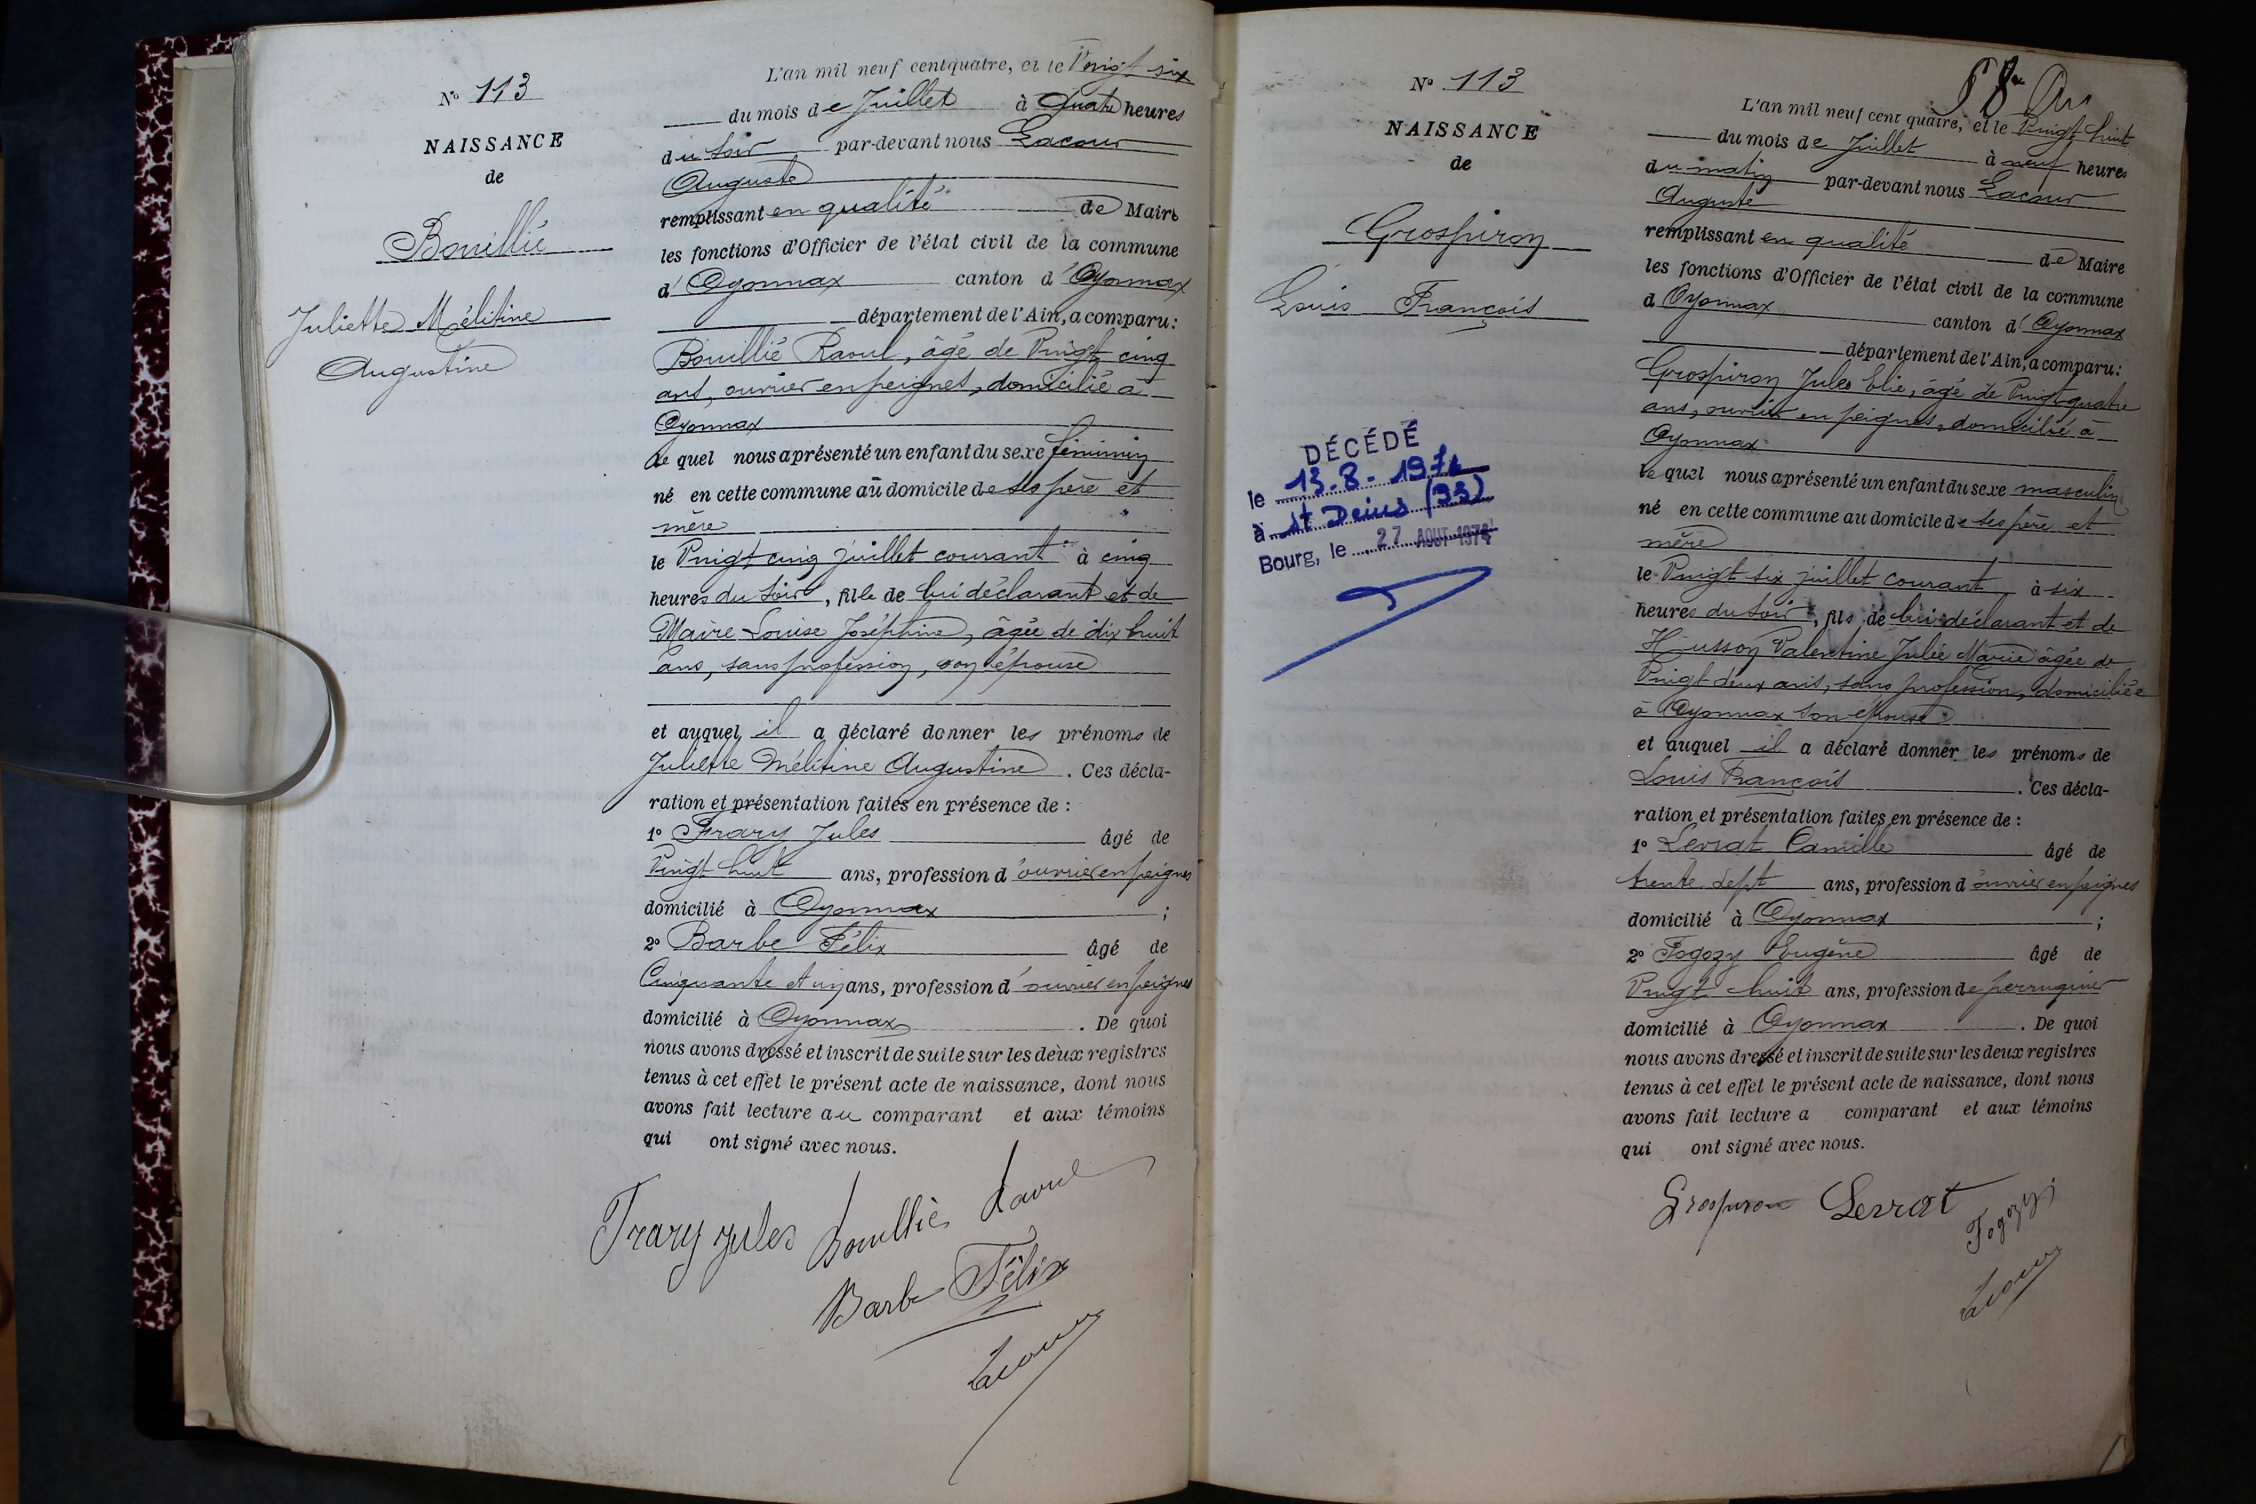 N° 113
NAISSANCE
de
Bouillié
Juliette Mélitine
Augustine
L'an mil neuf cent quatre, et le Vingt six
du mois de Juillet à Quatre heures
du soir par-devant nous Lacour
Auguste
remplissant en qualité de Maire
les fonctions d'Officier de l'état civil de la commune
d'Oyonnax canton d'Oyonnax
département de l'Ain, a comparu:
Bouillié Raoul, âgé de Vingt cinq
ans, ouvrier en peignes, domicilié à
Oyonnax
le quel nous a présenté un enfant du sexe féminin
né en cette commune au domicile de ses père et
mère
le Vingt cinq juillet courant à cinq
heures du soir, fille de lui déclarant et de
Maire Louise Joséphine, âgée de dix huit
ans, sans profession, son épouse
et auquel il a déclaré donner les prénoms de
Juliette Mélitine Augustine. Ces décla-
ration et présentation faites en présence de :
1° Frary Jules âgé de
Vingt huit ans, profession d'ouvrier en peignes
domicilié à Oyonnax ;
2° Barbe Félix âgé de
Cinquante et un ans, profession d'ouvrier en peignes
domicilié à Oyonnax. De quoi
nous avons dressé et inscrit de suite sur les deux registres
tenus à cet effet le présent acte de naissance, dont nous
avons fait lecture au comparant et aux témoins
qui ont signé avec nous.
Frary Jules Bouillié Raoul
Barbe Félix
Lacour
N° 113
NAISSANCE
de
Grospiron
Louis François
DÉCÉDÉ
le 13.8.1974
à St Denis (93)
Bourg, le 27 AOUT 1974
L'an mil neuf cent quatre, et le Vingt huit
du mois de Juillet à neuf heures
du matin par-devant nous Lacour
Auguste
remplissant en qualité de Maire
les fonctions d'Officier de l'état civil de la commune
d Oyonnax canton d'Oyonnax
département de l'Ain, a comparu:
Grospiron Jules Elie, âgé de Vingt quatre
ans, ouvrier en peignes, domicilié à
Oyonnax
le quel nous a présenté un enfant du sexe masculin
né en cette commune au domicile de ses père et
mère
le Vingt six juillet courant à six
heures du soir, fils de lui déclarant et de
Husson Valentine Julie Marie âgée de
Vingt deux ans, sans profession, domiciliée
à Oyonnax son épouse
et auquel il a déclaré donner les prénoms de
Louis François. Ces décla-
ration et présentation faites en présence de :
1° Levrat Camille âgé de
trente sept ans, profession d'ouvrier en peignes
domicilié à Oyonnax ;
2° Fogozy Eugène âgé de
Vingt huit ans, profession de perruquier
domicilié à Oyonnax. De quoi
nous avons dressé et inscrit de suite sur les deux registres
tenus à cet effet le présent acte de naissance, dont nous
avons fait lecture a comparant et aux témoins
qui ont signé avec nous.
Grospiron Levrat
Fogozy
Lacour